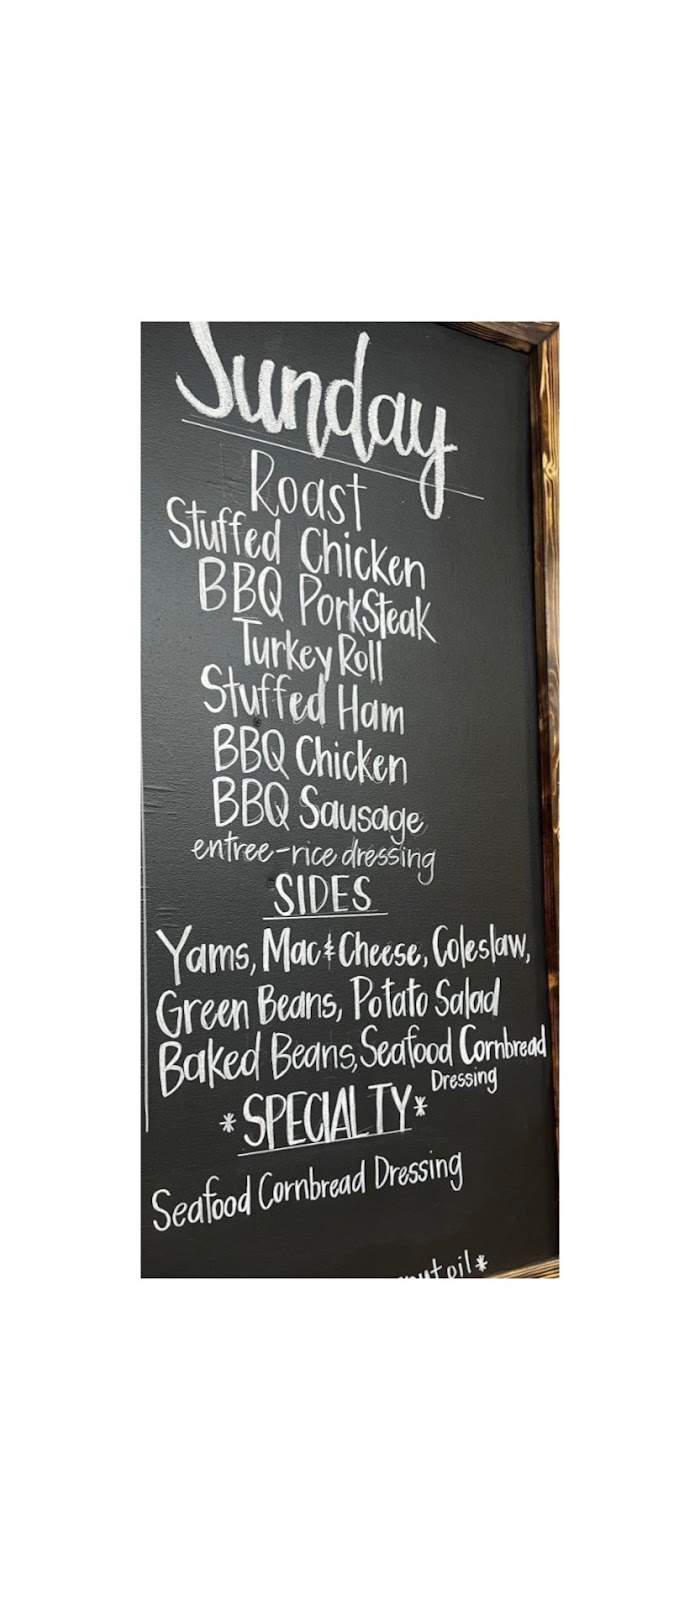 Sunday
Roast
Stuffed Chicken
BBQ PorkSteak
Turkey Roll
Stuffed Ham
BBQ Chicken
BBQ Sausage
entree-rice dressing
SIDES
Yams, Mac & Cheese, Coleslaw,
Green Beans, Potato Salad
Baked Beans, Seafood Cornbread
Dressing
*SPECIALTY*
Seafood Cornbread Dressing
oil*